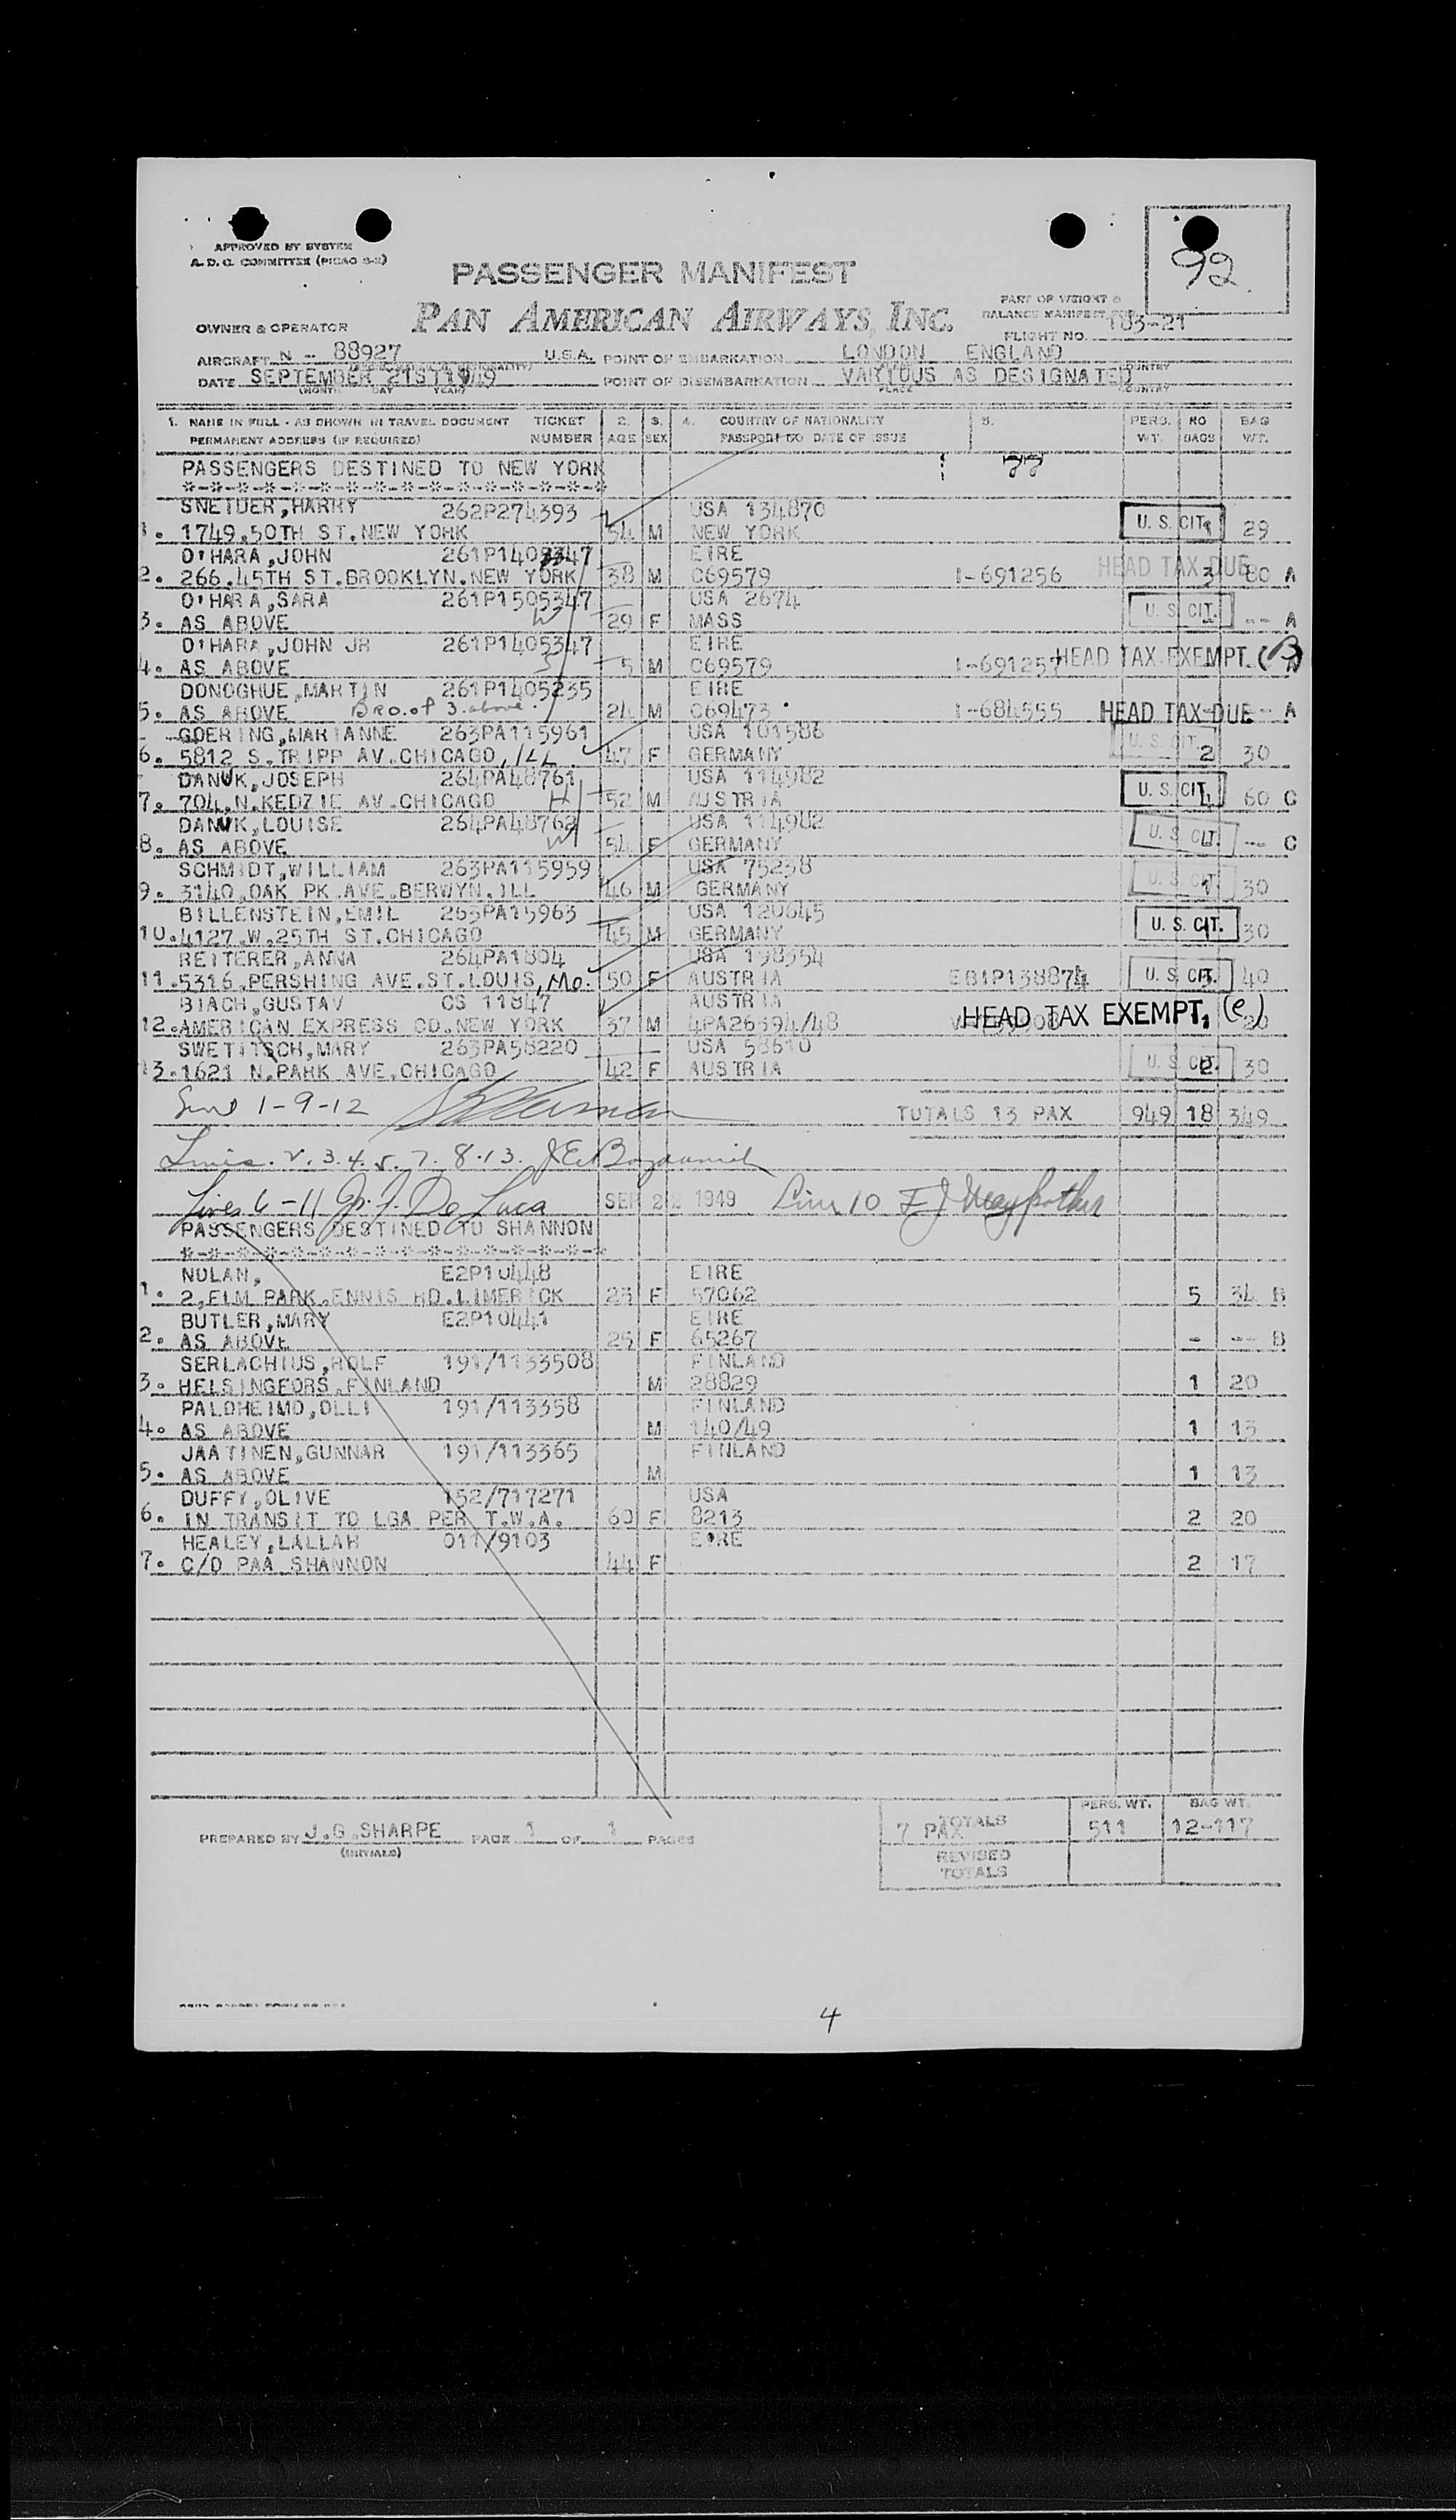 92
APPROVED BY SYSTEM
A. D. C. COMMITTEE (PICAO S-2)
PASSENGER MANIFEST
PART OF WEIGHT &
BALANCE MANIFEST FOR
PAN AMERICAN AIRWAYS, INC.
OWNER & OPERATOR
FLIGHT NO. 103-21
AIRCRAFT N - 88927 U.S.A. POINT OF EMBARKATION LONDON ENGLAND
DATE SEPTEMBER 21ST 1949 POINT OF DISEMBARKATION VARIOUS AS DESIGNATED
(MONTH DAY YEAR) PLACE COUNTRY
1. NAME IN FULL - AS SHOWN IN TRAVEL DOCUMENT TICKET 2. 3. 4. COUNTRY OF NATIONALITY 5. PERS. NO BAG
PERMANENT ADDRESS (IF REQUIRED) NUMBER AGE SEX PASSPORT NO DATE OF ISSUE WT. BAGS WT.
PASSENGERS DESTINED TO NEW YORK
*-*-*-*-*-*-*-*-*-*-*-*-*-*-*-*
SNEIDER,HARRY 262P274393 USA 134870
1. 1749.50TH ST.NEW YORK 54 M NEW YORK U. S. CIT. 1 29
O'HARA,JOHN 261P1405347 EIRE
2. 266.45TH ST.BROOKLYN.NEW YORK 38 M C69579 I-691256 HEAD TAX DUE 3 80 A
O'HARA,SARA 261P1505347 USA 2674
3. AS ABOVE W 29 F MASS U. S. CIT. -- A
O'HARA,JOHN JR 261P1405347 EIRE
4. AS ABOVE 5 M C69579 I-691257 HEAD TAX EXEMPT. (B)
DONOGHUE,MARTIN 261P1405235 EIRE
5. AS ABOVE Bro. of 3. above. 24 M C69473 I-684555 HEAD TAX DUE -- A
GOERING,MARIANNE 263PA115961 USA 101586
6. 5812 S.TRIPP AV.CHICAGO, ILL 47 F GERMANY U. S. CIT. 2 30
DANUK,JOSEPH 264PA48761 USA 114982
7. 704.N.KEDZIE AV.CHICAGO H 52 M AUSTRIA U. S. CIT. 60 C
DANUK,LOUISE 264PA48762 USA 114982
8. AS ABOVE W 54 F GERMANY U. S. CIT. -- C
SCHMIDT,WILLIAM 263PA115959 USA 75238
9. 3140.OAK PK AVE.BERWYN.ILL 46 M GERMANY U. S. CIT. 1 30
BILLENSTEIN,EMIL 263PA15963 USA 120645
10.4127.W.25TH ST.CHICAGO 45 M GERMANY U. S. CIT. 30
REITERER,ANNA 264PA1804 USA 198354
11.5316.PERSHING AVE.ST.LOUIS, Mo. 50 F AUSTRIA EB1P138874 U. S. CIT. 40
BIACH,GUSTAV CS 11847 AUSTRIA
12.AMERICAN EXPRESS CO.NEW YORK 37 M 4PA26394/48 HEAD TAX EXEMPT, (e) 20
SWETITSCH,MARY 263PA58220 USA 58610
13.1621 N.PARK AVE.CHICAGO 42 F AUSTRIA U. S. CIT. 2 30
1-9-12 TOTALS 13 PAX 949 18 349
Lines. 2. 3. 4. 5. 7. 8. 13.
Lines 6-11 De Luca SEP 22 1949 Line 10
PASSENGERS DESTINED TO SHANNON
*-*-*-*-*-*-*-*-*-*-*-*-*-*-*-*
NOLAN, E2P10448 EIRE
1. 2,ELM PARK.ENNIS RD.LIMERICK 23 F 57062 5 34 B
BUTLER,MARY E2P10441 EIRE
2. AS ABOVE 25 F 65267 - --- B
SERLACHIUS,ROLF 191/1133508 FINLAND
3. HELSINGFORS.FINLAND M 28829 1 20
PALOHEIMO,OLLI 191/113358 FINLAND
4. AS ABOVE M 140/49 1 13
JAATINEN,GUNNAR 191/113365 FINLAND
5. AS ABOVE M 1 13
DUFFY,OLIVE 152/717271 USA
6. IN TRANSIT TO LGA PER T.W.A. 60 F 8213 2 20
HEALEY,LALLAH 011/9103 EIRE
7. C/O PAA SHANNON 44 F 2 17
PERS. WT. BAG WT.
PREPARED BY J.G.SHARPE PAGE 1 OF 1 PAGES 7 PAX TOTALS 511 12-117
(INITIALS)
REVISED
TOTALS
4